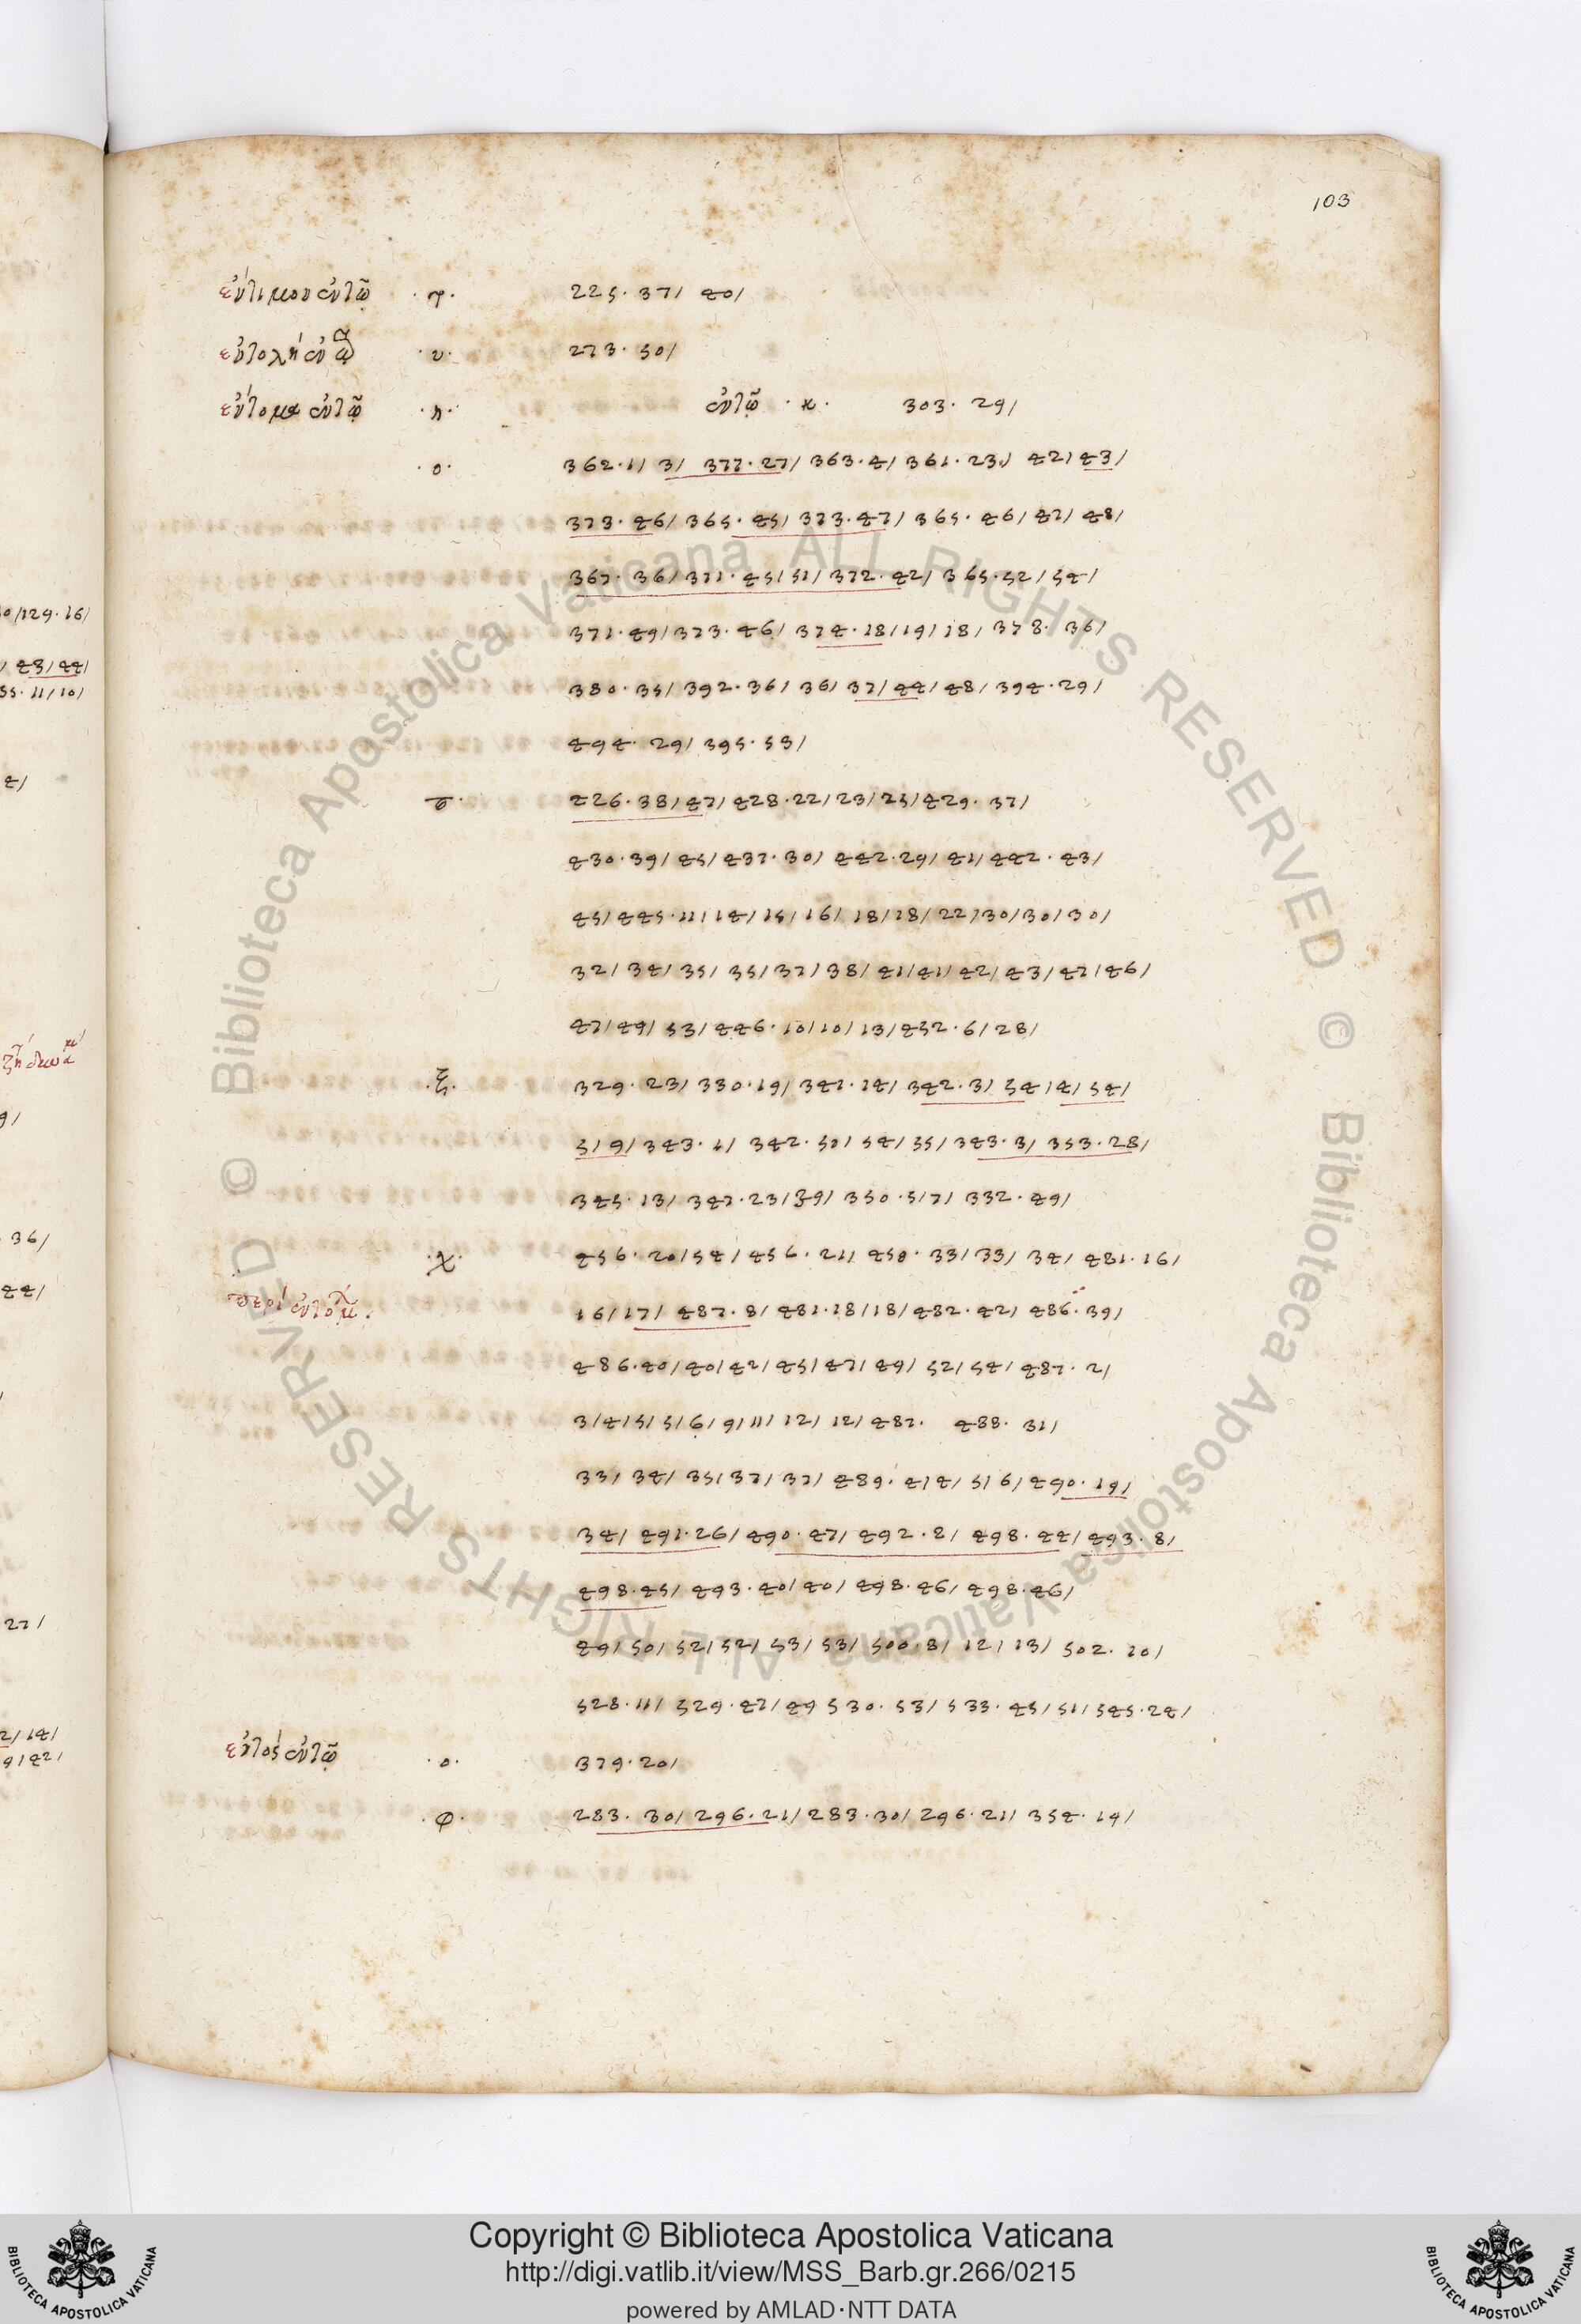 103
ἔντιμον ἐν τῶ · τ · 225 · 37/ 40/
ἐντολὴ ἐν τῶ · υ · 273 · 50/
ἔντομα ἐν τῶ · η · ἐν τῶ · κ · 303 · 29/
· ο · 362 · 1/ 3/ 377 · 27/ 363 · 4/ 361 · 23/ 42/ 43/
373 · 46/ 365 · 45/ 373 · 47/ 365 · 46/ 47/ 48/
367 · 36/ 371 · 45/ 51/ 372 · 42/ 365 · 52/ 54/
371 · 49/ 373 · 46/ 374 · 18/ 19/ 18/ 378 · 36/
380 · 35/ 392 · 36/ 36/ 37/ 44/ 48/ 394 · 29/
494 · 29/ 395 · 53/
426 · 38/ 47/ 428 · 22/ 23/ 25/ 429 · 37/
430 · 39/ 45/ 437 · 30/ 442 · 29/ 41/ 442 · 43/
45/ 445 · 11/ 14/ 15/ 16/ 18/ 18/ 22/ 30/ 30/ 30/
32/ 34/ 35/ 35/ 37/ 38/ 41/ 41/ 42/ 43/ 47/ 46/
47/ 49/ 53/ 446 · 10/ 10/ 13/ 452 · 6/ 28/
· ξ · 329 · 23/ 330 · 19/ 341 · 14/ 342 · 3/ 54/ 4/ 54/
5/ 9/ 343 · 1/ 342 · 50/ 54/ 55/ 343 · 3/ 353 · 28/
345 · 13/ 347 · 23/ 39/ 350 · 5/ 7/ 332 · 49/
· χ · 456 · 20/ 54/ 456 · 21/ 458 · 33/ 33/ 34/ 481 · 16/
περὶ ἐντόμ. 16/ 17/ 487 · 8/ 481 · 18/ 18/ 482 · 42/ 486 · 39/
486 · 40/ 40/ 42/ 45/ 47/ 49/ 52/ 54/ 487 · 2/
3/ 4/ 5/ 5/ 6/ 9/ 11/ 12/ 12/ 487 · 488 · 31/
33/ 34/ 35/ 37/ 37/ 489 · 4/ 4/ 5/ 6/ 490 · 19/
34/ 491 · 26/ 490 · 47/ 492 · 2/ 498 · 44/ 493 · 8/
498 · 45/ 493 · 40/ 40/ 498 · 46/ 498 · 46/
49/ 50/ 52/ 52/ 53/ 53/ 500 · 8/ 12/ 13/ 502 · 10/
528 · 11/ 529 · 47/ 49 530 · 53/ 533 · 45/ 51/ 545 · 24/
ἐντὸς ἐν τῶ · ο · 379 · 20/
· φ · 283 · 30/ 296 · 21/ 283 · 30/ 296 · 21/ 354 · 19/
© Biblioteca Apostolica Vaticana ALL RIGHTS RESERVED © Biblioteca Apostolica Vaticana ALL RIGHTS RESERVED
Copyright © Biblioteca Apostolica Vaticana
http://digi.vatlib.it/view/MSS_Barb.gr.266/0215
powered by AMLAD·NTT DATA
BIBLIOTECA APOSTOLICA VATICANA
BIBLIOTECA APOSTOLICA VATICANA